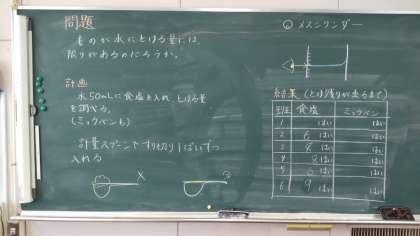 問題
ものが水にとける量には、
限りがあるのだろうか。
計画
水50mLに食塩を入れ、とける量
を調べる。
(ミョウバンも)
計量スプーンですり切り1ぱいずつ
入れる
X
メスシリンダー
結果(とけ残りが出るまで)
班 食塩 ミョウバン
1 はい はい
2 6 はい はい
3 8 はい はい
4 8 はい はい
5 6 はい はい
6 9 はい はい